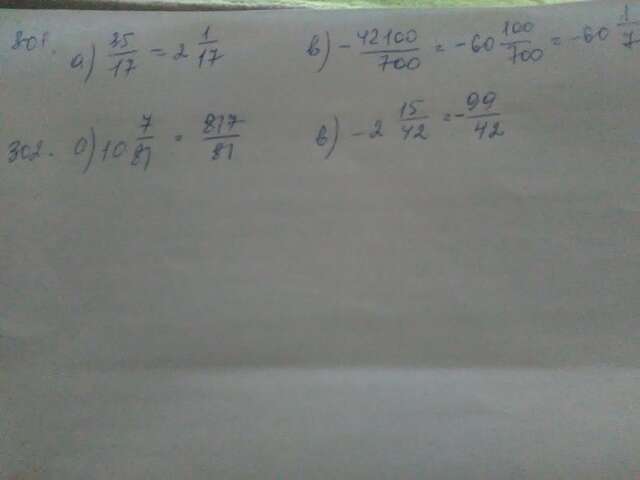 801. а) 35/17 = 2 1/17 в) - 42100/700 = -60 100/700 = -60 1/7
302. а) 10 7/81 = 817/81 в) -2 15/42 = - 99/42